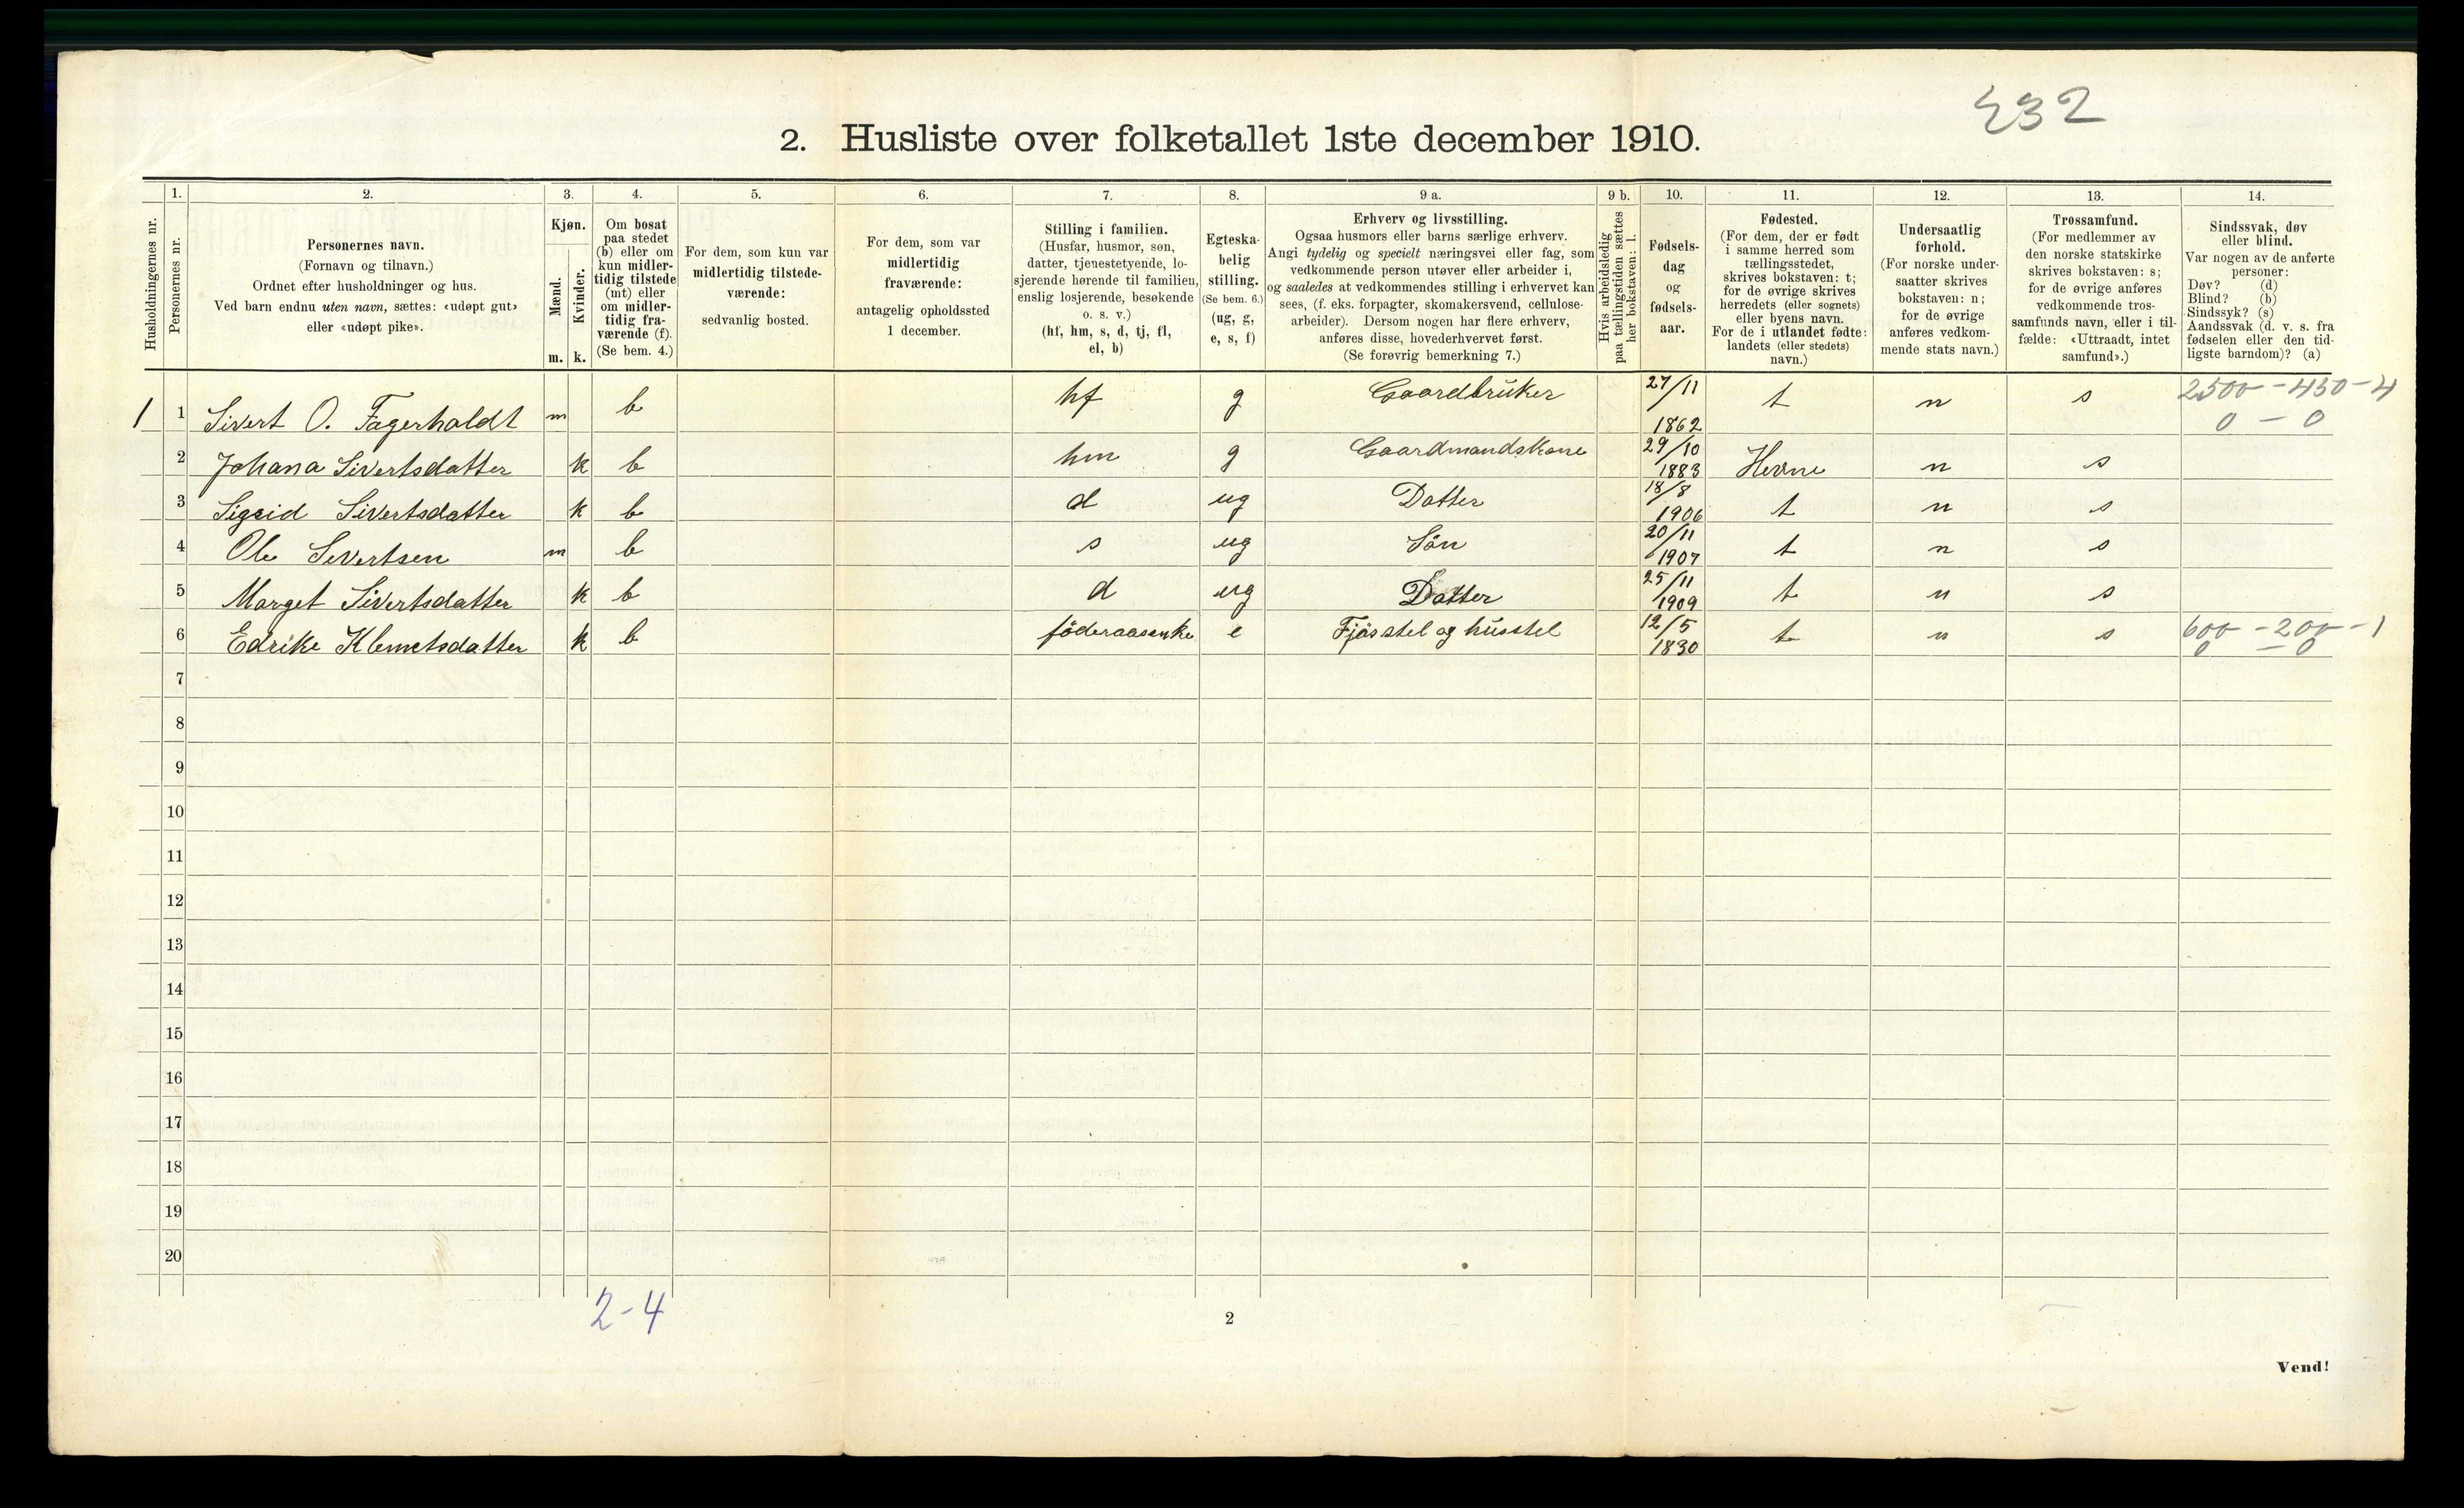 232
2. Husliste over folketallet 1ste december 1910.
1. 2. 3. 4. 5. 6. 7. 8. 9 a. 9 b. 10. 11. 12. 13. 14.
Husholdningernes nr.
Personernes nr.
Personernes navn.
(Fornavn og tilnavn.)
Ordnet efter husholdninger og hus.
Ved barn endnu uten navn, sættes: «udøpt gut»
eller «udøpt pike».
Kjøn.
Mænd.
Kvinder.
m. k.
Om bosat
paa stedet
(b) eller om
kun midler-
tidig tilstede
(mt) eller
om midler-
tidig fra-
værende (f).
(Se bem. 4.)
For dem, som kun var
midlertidig tilstede-
værende:
sedvanlig bosted.
For dem, som var
midlertidig
fraværende:
antagelig opholdssted
1 december.
Stilling i familien.
(Husfar, husmor, søn,
datter, tjenestetyende, lo-
sjerende hørende til familien,
enslig losjerende, besøkende
o. s. v.)
(hf, hm, s, d, tj, fl,
el, b)
Egteska-
belig
stilling.
(Se bem. 6.)
(ug, g,
e, s, f)
Erhverv og livsstilling.
Ogsaa husmors eller barns særlige erhverv.
Angi tydelig og specielt næringsvei eller fag, som
vedkommende person utøver eller arbeider i,
og saaledes at vedkommendes stilling i erhvervet kan
sees, (f. eks. forpagter, skomakersvend, cellulose-
arbeider). Dersom nogen har flere erhverv,
anføres disse, hovederhvervet først.
(Se forøvrig bemerkning 7.)
Hvis arbeidsledig
paa tællingstiden sættes
her bokstaven: l.
Fødsels-
dag
og
fødsels-
aar.
Fødested.
(For dem, der er født
i samme herred som
tællingsstedet,
skrives bokstaven: t;
for de øvrige skrives
herredets (eller sognets)
eller byens navn.
For de i utlandet fødte:
landets (eller stedets)
navn.)
Undersaatlig
forhold.
(For norske under-
saatter skrives
bokstaven: n;
for de øvrige
anføres vedkom-
mende stats navn.)
Trossamfund.
(For medlemmer av
den norske statskirke
skrives bokstaven: s;
for de øvrige anføres
vedkommende tros-
samfunds navn, eller i til-
fælde: «Uttraadt, intet
samfund».)
Sindssvak, døv
eller blind.
Var nogen av de anførte
personer:
Døv? (d)
Blind? (b)
Sindssyk? (s)
Aandssvak (d. v. s. fra
fødselen eller den tid-
ligste barndom)? (a)
1 1 Sivert O. Fagerholdt m b hf g Gaardbruker 27/11 1862 t n s 2500-450-4
0-0
2 Johana Sivertsdatter k b hm g Gaardmandskone 29/10 1883 Hevne n s
3 Sigrid Sivertsdatter k b d ug Datter 18/8 1906 t n s
4 Ole Sivertsen m b s ug Sön 20/11 1907 t n s
5 Marget Sivertsdatter k b d ug Datter 25/11 1909 t n s
6 Edrike Klemetsdatter k b föderaasenke e Fjösstel og husstel 12/5 1830 t n s 600-200-1
0-0
7
8
9
10
11
12
13
14
15
16
17
18
19
20
2-4
2
Vend!